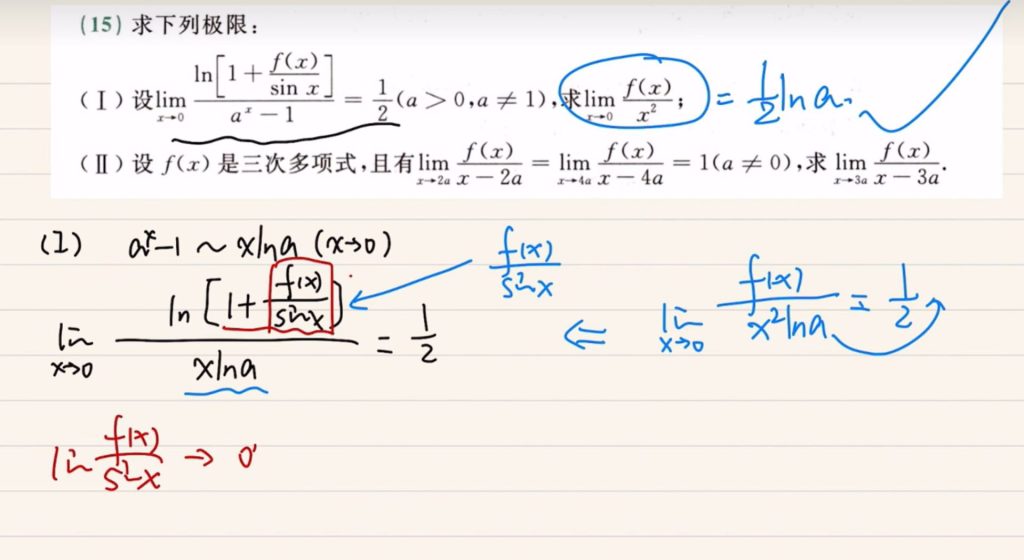 (15) 求下列极限:
(Ⅰ) 设lim_{x→0} ln[1+f(x)/sin x]/(a^x-1) = 1/2 (a>0,a≠1),求lim_{x→0} f(x)/x²; = 1/2 ln a.
(Ⅱ) 设 f(x) 是三次多项式,且有lim_{x→2a} f(x)/(x-2a) = lim_{x→4a} f(x)/(x-4a) = 1(a≠0),求 lim_{x→3a} f(x)/(x-3a).
(I) a^x-1 ~ xlna (x→0)
lim_{x→0} ln[1+f(x)/sinx]/(xlna) = 1/2
f(x)/sinx
⇐ lim_{x→0} f(x)/(x²lna) = 1/2
lim f(x)/sinx → 0